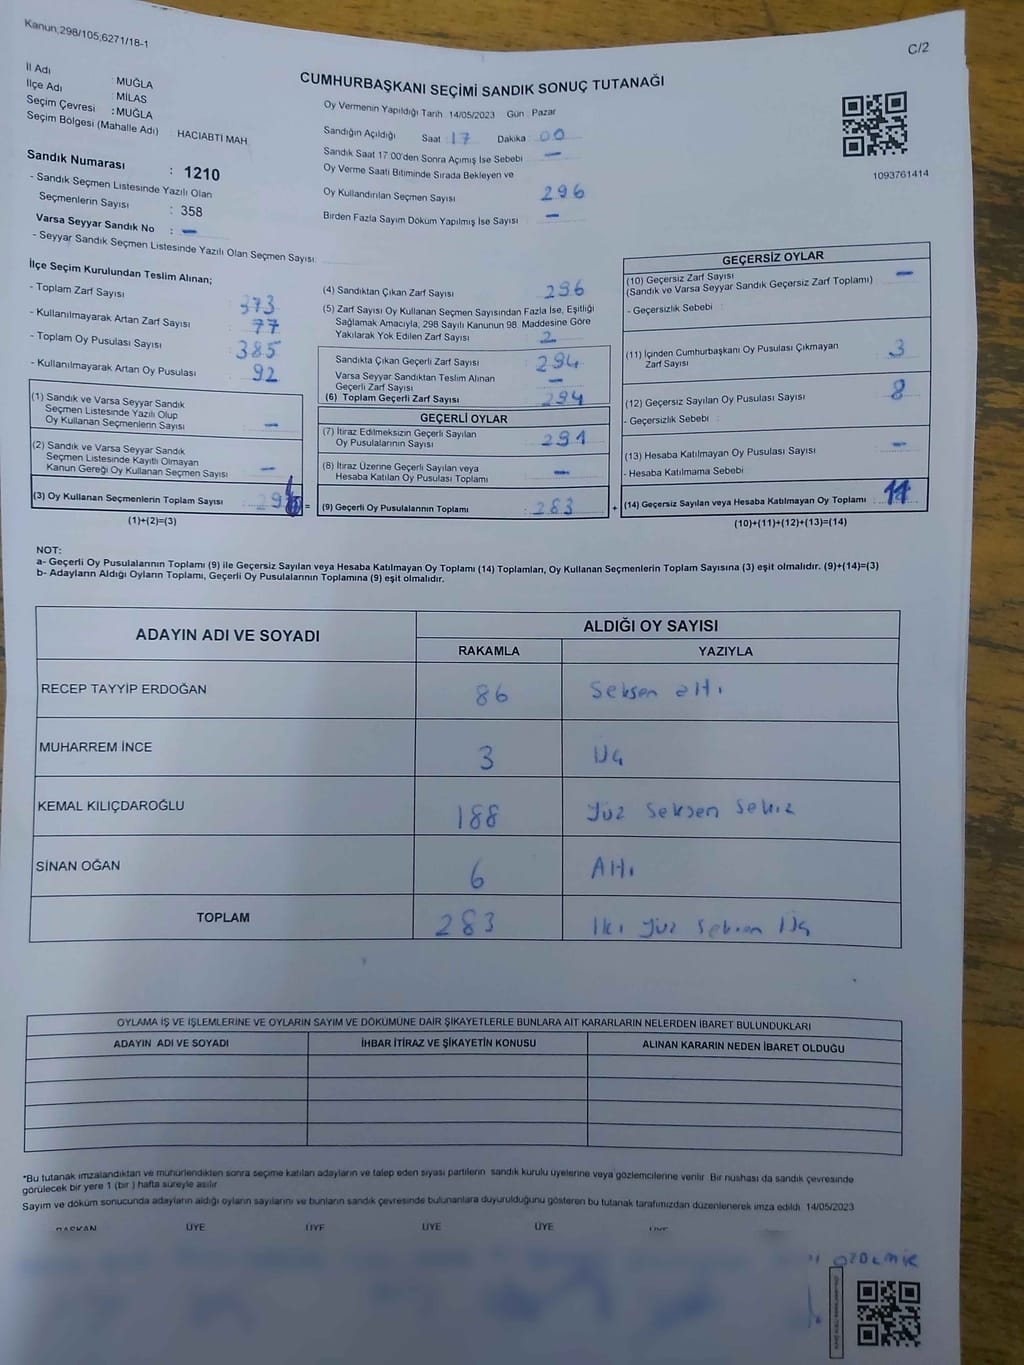 Kanun,298/105,6271/18-1
C/2
İl Adı : MUĞLA
İlçe Adı : MİLAS
Seçim Çevresi : MUĞLA
Seçim Bölgesi (Mahalle Adı) : HACIABTI MAH
Sandık Numarası : 1210
- Sandık Seçmen Listesinde Yazılı Olan
Seçmenlerin Sayısı : 358
Varsa Seyyar Sandık No : -
- Seyyar Sandık Seçmen Listesinde Yazılı Olan Seçmen Sayısı:
CUMHURBAŞKANI SEÇİMİ SANDIK SONUÇ TUTANAĞI
Oy Vermenin Yapıldığı Tarih 14/05/2023 Gün : Pazar
Sandığın Açıldığı Saat 17 Dakika 00
Sandık Saat 17:00'den Sonra Açımış İse Sebebi -
Oy Verme Saati Bitiminde Sırada Bekleyen ve
Oy Kullandırılan Seçmen Sayısı 296
Birden Fazla Sayım Döküm Yapılmış İse Sayısı -
1093761414
İlçe Seçim Kurulundan Teslim Alınan;
- Toplam Zarf Sayısı : 373
- Kullanılmayarak Artan Zarf Sayısı : 77
- Toplam Oy Pusulası Sayısı : 385
- Kullanılmayarak Artan Oy Pusulası : 92
(1) Sandık ve Varsa Seyyar Sandık
Seçmen Listesinde Yazılı Olup
Oy Kullanan Seçmenlerin Sayısı : -
(2) Sandık ve Varsa Seyyar Sandık
Seçmen Listesinde Kayıtlı Olmayan
Kanun Gereği Oy Kullanan Seçmen Sayısı : -
(3) Oy Kullanan Seçmenlerin Toplam Sayısı : =
(1)+(2)=(3)
(4) Sandıktan Çıkan Zarf Sayısı : 296
(5) Zarf Sayısı Oy Kullanan Seçmen Sayısından Fazla İse, Eşitliği
Sağlamak Amacıyla, 298 Sayılı Kanunun 98. Maddesine Göre
Yakılarak Yok Edilen Zarf Sayısı : 2
Sandıkta Çıkan Geçerli Zarf Sayısı : 294
Varsa Seyyar Sandıktan Teslim Alınan
Geçerli Zarf Sayısı : -
(6) Toplam Geçerli Zarf Sayısı : 294
GEÇERLİ OYLAR
(7) İtiraz Edilmeksizin Geçerli Sayılan
Oy Pusulalarının Sayısı : 291
(8) İtiraz Üzerine Geçerli Sayılan veya
Hesaba Katılan Oy Pusulası Toplamı : -
(9) Geçerli Oy Pusulalarının Toplamı : 283 +
GEÇERSİZ OYLAR
(10) Geçersiz Zarf Sayısı
(Sandık ve Varsa Seyyar Sandık Geçersiz Zarf Toplamı) : -
- Geçersizlik Sebebi :
(11) İçinden Cumhurbaşkanı Oy Pusulası Çıkmayan
Zarf Sayısı : 3
(12) Geçersiz Sayılan Oy Pusulası Sayısı : 8
- Geçersizlik Sebebi :
(13) Hesaba Katılmayan Oy Pusulası Sayısı : -
- Hesaba Katılmama Sebebi
(14) Geçersiz Sayılan veya Hesaba Katılmayan Oy Toplamı : 11
(10)+(11)+(12)+(13)=(14)
NOT:
a- Geçerli Oy Pusulalarının Toplamı (9) ile Geçersiz Sayılan veya Hesaba Katılmayan Oy Toplamı (14) Toplamları, Oy Kullanan Seçmenlerin Toplam Sayısına (3) eşit olmalıdır. (9)+(14)=(3)
b- Adayların Aldığı Oyların Toplamı, Geçerli Oy Pusulalarının Toplamına (9) eşit olmalıdır.
ADAYIN ADI VE SOYADI ALDIĞI OY SAYISI
RAKAMLA YAZIYLA
RECEP TAYYİP ERDOĞAN 86 Seksen altı
MUHARREM İNCE 3 Üç
KEMAL KILIÇDAROĞLU 188 Yüz Seksen Sekiz
SİNAN OĞAN 6 Altı
TOPLAM 283 İki Yüz Seksen Üç
OYLAMA İŞ VE İŞLEMLERİNE VE OYLARIN SAYIM VE DÖKÜMÜNE DAİR ŞİKAYETLERLE BUNLARA AİT KARARLARIN NELERDEN İBARET BULUNDUKLARI
ADAYIN ADI VE SOYADI İHBAR İTİRAZ VE ŞİKAYETİN KONUSU ALINAN KARARIN NEDEN İBARET OLDUĞU
*Bu tutanak imzalandıktan ve mühürlendikten sonra seçime katılan adayların ve talep eden siyasi partilerin sandık kurulu üyelerine veya gözlemcilerine verilir. Bir nushası da sandık çevresinde
görülecek bir yere 1 (bir ) hafta süreyle asılır
Sayım ve döküm sonucunda adayların aldığı oyların sayılarını ve bunların sandık çevresinde bulunanlara duyurulduğunu gösteren bu tutanak tarafımızdan düzenlenerek imza edildi. 14/05/2023
BAŞKAN ÜYE ÜYE ÜYE ÜYE ÜYE